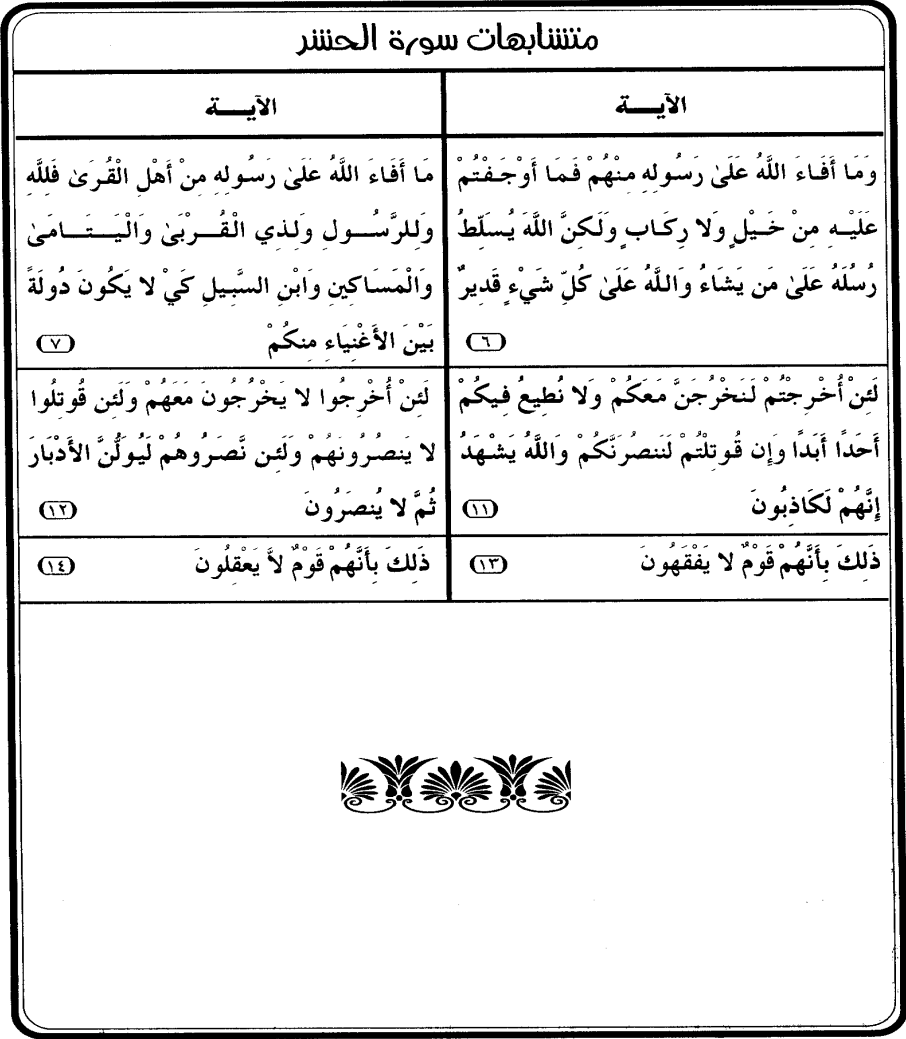 متشابهات سورة الحشر
الآيــــة
الآيــــة
وَمَا أَفَاءَ اللَّهُ عَلَىٰ رَسُولِهِ مِنْهُمْ فَمَا أَوْجَفْتُمْ
عَلَيْهِ مِنْ خَيْلٍ وَلا رِكَابٍ وَلَكِنَّ اللَّهَ يُسَلِّطُ
رُسُلَهُ عَلَىٰ مَن يَشَاءُ وَاللَّهُ عَلَىٰ كُلِّ شَيْءٍ قَدِيرٌ
(٦)
مَا أَفَاءَ اللَّهُ عَلَىٰ رَسُولِهِ مِنْ أَهْلِ الْقُرَىٰ فَلِلَّهِ
وَلِلرَّسُــولِ وَلِذِي الْقُــرْبَىٰ وَالْيَتَــامَىٰ
وَالْمَسَاكِينِ وَابْنِ السَّبِيلِ كَيْ لا يَكُونَ دُولَةً
بَيْنَ الأَغْنِيَاءِ مِنكُمْ (٧)
لَئِنْ أُخْرِجْتُمْ لَنَخْرُجَنَّ مَعَكُمْ وَلا نُطِيعُ فِيكُمْ
أَحَدًا أَبَدًا وَإِن قُوتِلْتُمْ لَنَنصُرَنَّكُمْ وَاللَّهُ يَشْهَدُ
إِنَّهُمْ لَكَاذِبُونَ (١١)
لَئِنْ أُخْرِجُوا لا يَخْرُجُونَ مَعَهُمْ وَلَئِن قُوتِلُوا
لا يَنصُرُونَهُمْ وَلَئِن نَّصَرُوهُمْ لَيُوَلُّنَّ الأَدْبَارَ
ثُمَّ لا يُنصَرُونَ (١٢)
ذَلِكَ بِأَنَّهُمْ قَوْمٌ لا يَفْقَهُونَ (١٣)
ذَلِكَ بِأَنَّهُمْ قَوْمٌ لاَّ يَعْقِلُونَ (١٤)